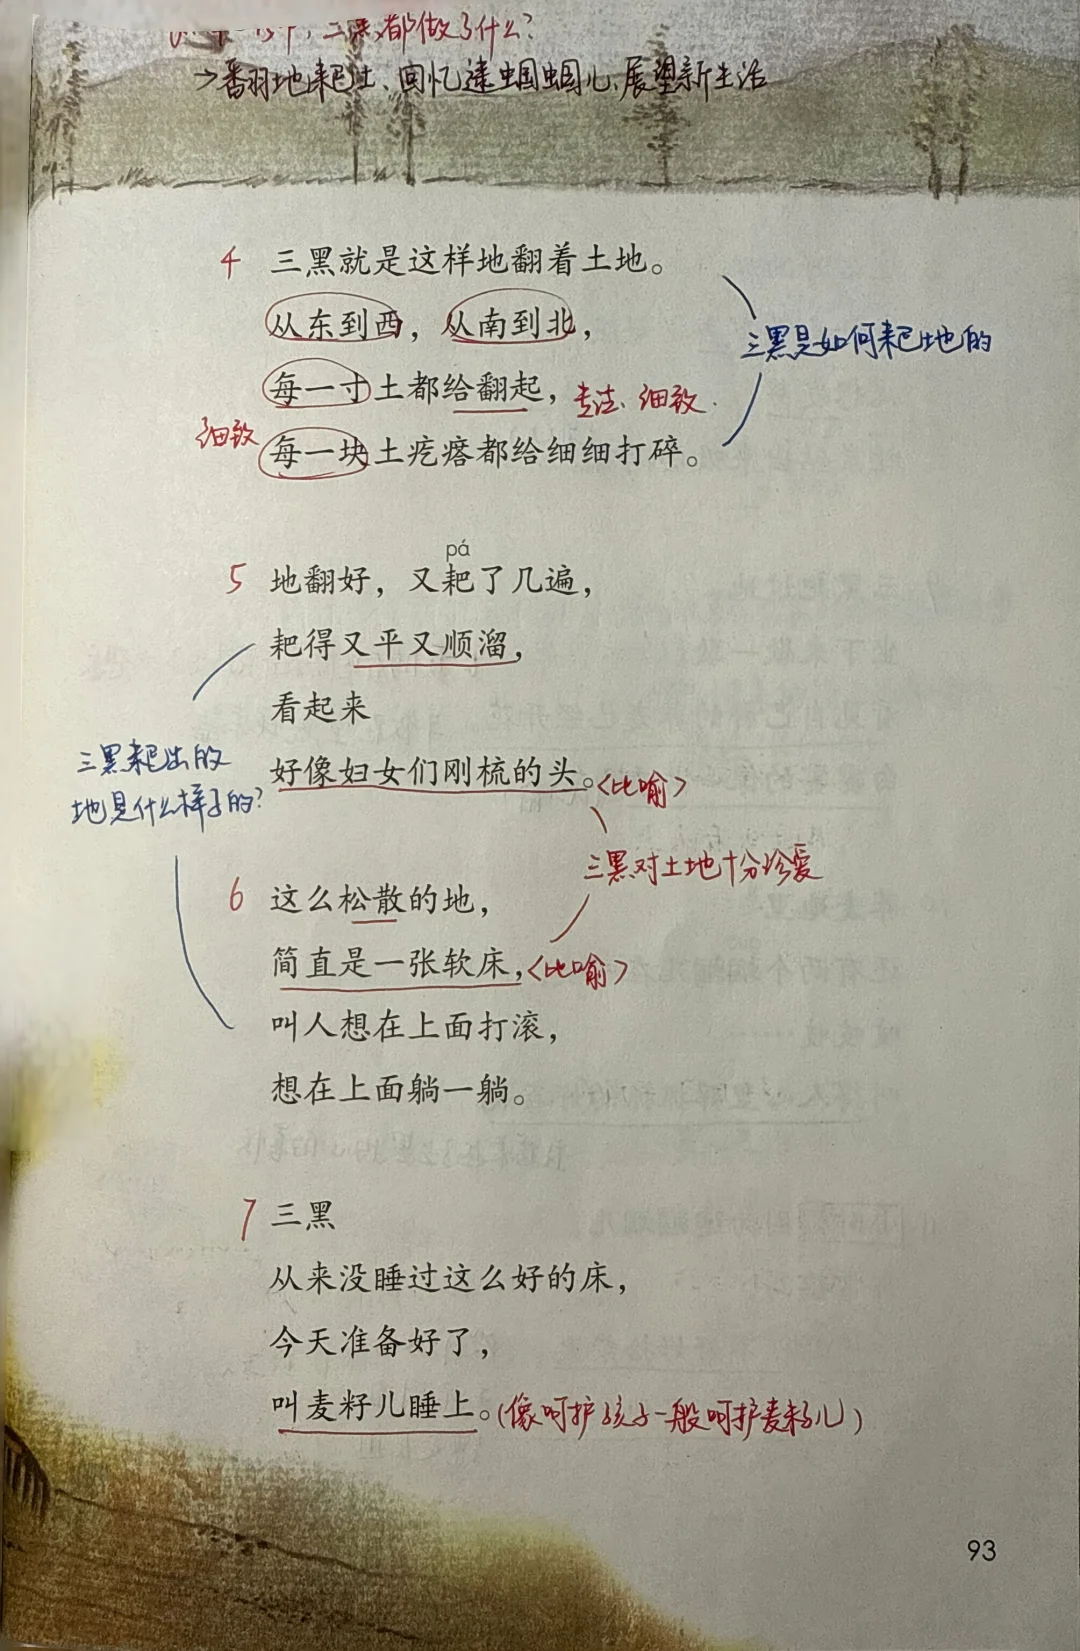 三黑都做了什么？
→翻地耙土、回忆逮蝈蝈儿、展望新生活
4 三黑就是这样地翻着土地。
从东到西，从南到北，
三黑是如何耙地的
每一寸土都给翻起，专注、细致.
细致
每一块土疙瘩都给细细打碎。
pá
5 地翻好，又耙了几遍，
耙得又平又顺溜，
看起来
三黑耙出的
地是什么样子的?
好像妇女们刚梳的头。〈比喻〉
三黑对土地十分珍爱
6 这么松散的地，
简直是一张软床，〈比喻〉
叫人想在上面打滚，
想在上面躺一躺。
7 三黑
从来没睡过这么好的床，
今天准备好了，
叫麦籽儿睡上。(像呵护孩子一般呵护麦籽儿)
93